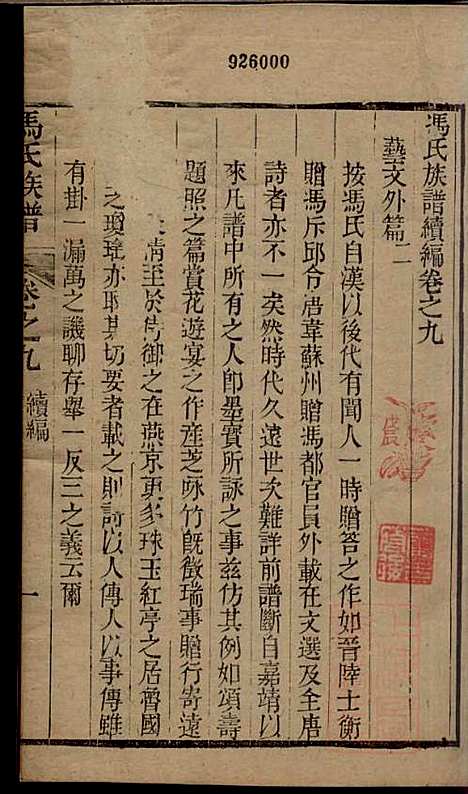 926000
馮氏族譜續編卷之九
藝文外篇二
按馮氏自漢以後代有聞人一時贈答之作如晉陸士衡
贈馮斥邱令唐韋蘇州贈馮都官員外載在文選及全唐
詩者亦不一矣然時代久遠世次難詳前譜斷自嘉靖以
來凡譜中所有之人卽墨寶所詠之事茲仿其例如頌壽
題照之篇賞花遊宴之作產芝咏竹旣徵瑞事贈行寄遠
情至於侍御之在燕京更多珠玉紅亭之居曾國
之瓊瑤亦取其切要者載之則詩以人傳人以事傳雖
有掛一漏萬之譏聊存舉一反三之義云爾
馮氏族譜 卷之九 續編 一